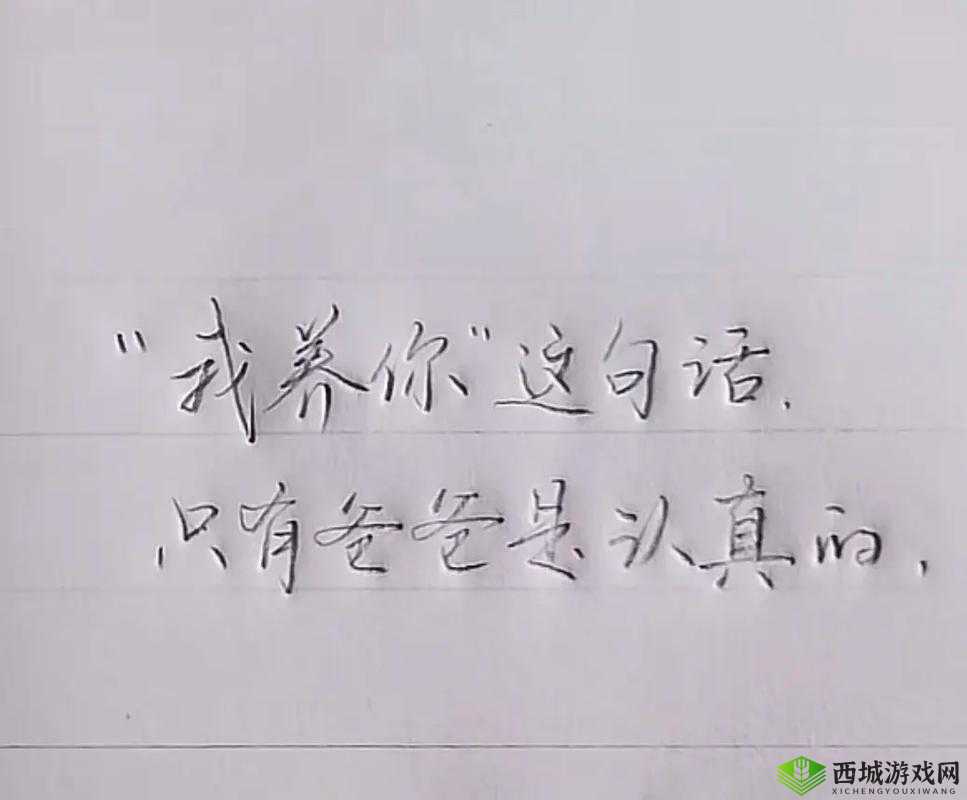 “我养你”这句话.
只有爸爸是认真的.
西城游戏网
XICHENGYOUXIWANG